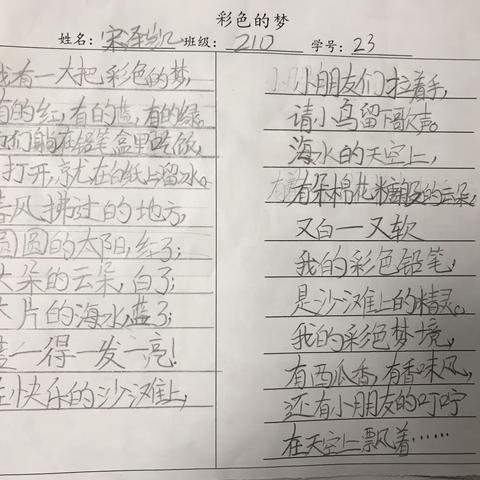 彩色的梦
姓名：宋泽凯 班级：210 学号：23
我有一大把彩色的梦，
有的红，有的蓝，有的绿。
他们躺在铅笔盒里
打开，就在白纸上溜冰。
春风拂过的地方，
圆圆的太阳，红了；
大朵的云朵，白了；
大片的海水，蓝了；
蓝一得一发一亮！
在快乐的沙滩上，
小朋友们拉着手，
请小鸟留下歌声。
海水的天空上，
有朵棉花的云朵，
又白一又软
我的彩色铅笔，
是沙滩上的精灵。
我的彩色梦境，
有西瓜香，有香味风，
还有小朋友的叮咛
在天空上飘着……